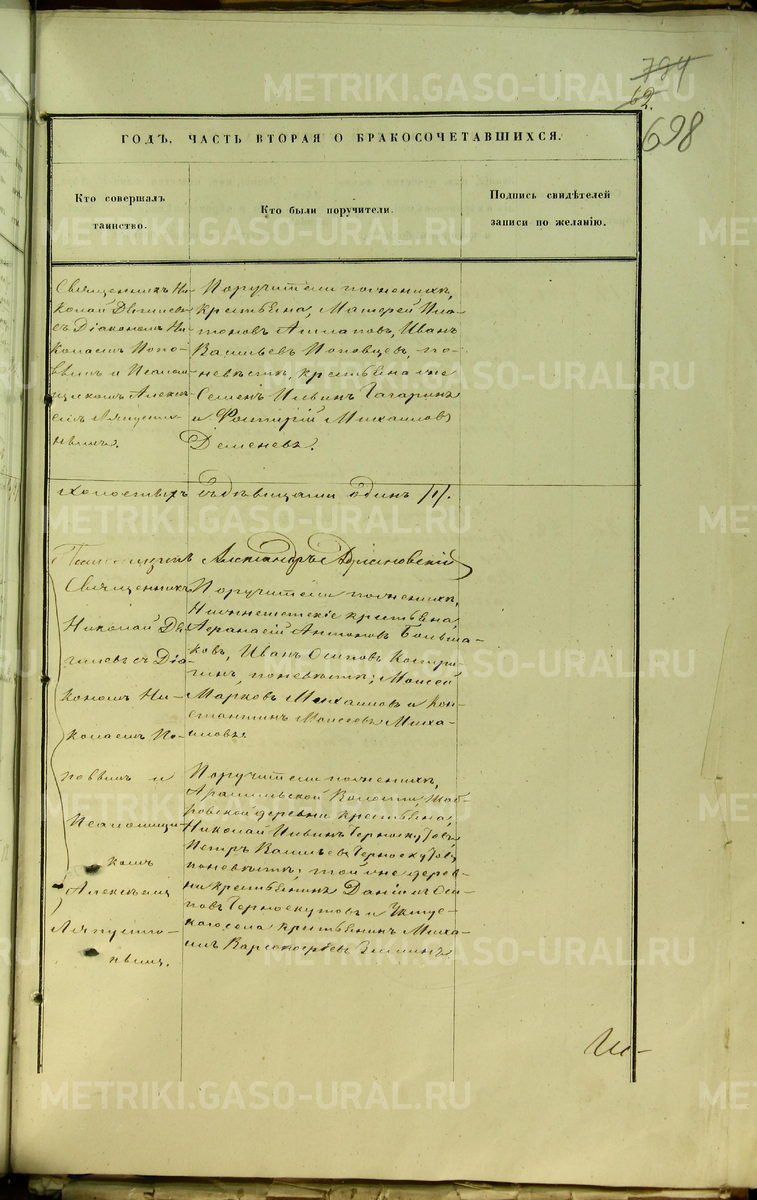 784
62.
698
ГОДЪ, ЧАСТЬ ВТОРАЯ О БРАКОСОЧЕТАВШИХСЯ.
Кто совершалъ
таинство.
Кто были поручители.
Подпись свидѣтелей
записи по желанію.
Священникъ Ни-
колай
съ Діакономъ Ни-
колаемъ Попо-
вымъ и Псалом-
щикомъ Алексѣ-
емъ Ляпустин-
нымъ.
Поручители по женихѣ,
крестьяна, Матфей
Ивавъ
Васильевъ Поповцевъ, по-
невѣстѣ, крестьяна же
Семенъ Ильинъ Гагаринъ
и Михаиловъ
Деменевъ.
холостыхъ съ дѣвицами одинъ /1/.
Александръ
Священникъ
Николай
съ Діа-
кономъ Ни-
колаемъ По-
повымъ и
Псаломщи-
комъ
Алексѣемъ
Ляпусти-
нымъ.
Поручители по женихѣ,
крестьяна,
Аѳанасій Антоновъ Больша-
ковъ, Иванъ Осиповъ
по невѣстѣ; Моисей
Марковъ Михаиловъ и Кон-
стантинъ Моисеевъ Миха-
иловъ.
Поручители по женихѣ,
Арамильской Волости, Шаб-
ровской деревни крестьяна,
Николай Ильинъ Черноскутовъ,
Петръ Васильевъ Черноскутовъ,
по невѣстѣ; той же дерев-
ни крестьянинъ Даніилъ Оси-
повъ Черноскутовъ и Уктус-
скаго села крестьянинъ Миха-
илъ Зиминъ.
METRIKI.GASO-URAL.RU